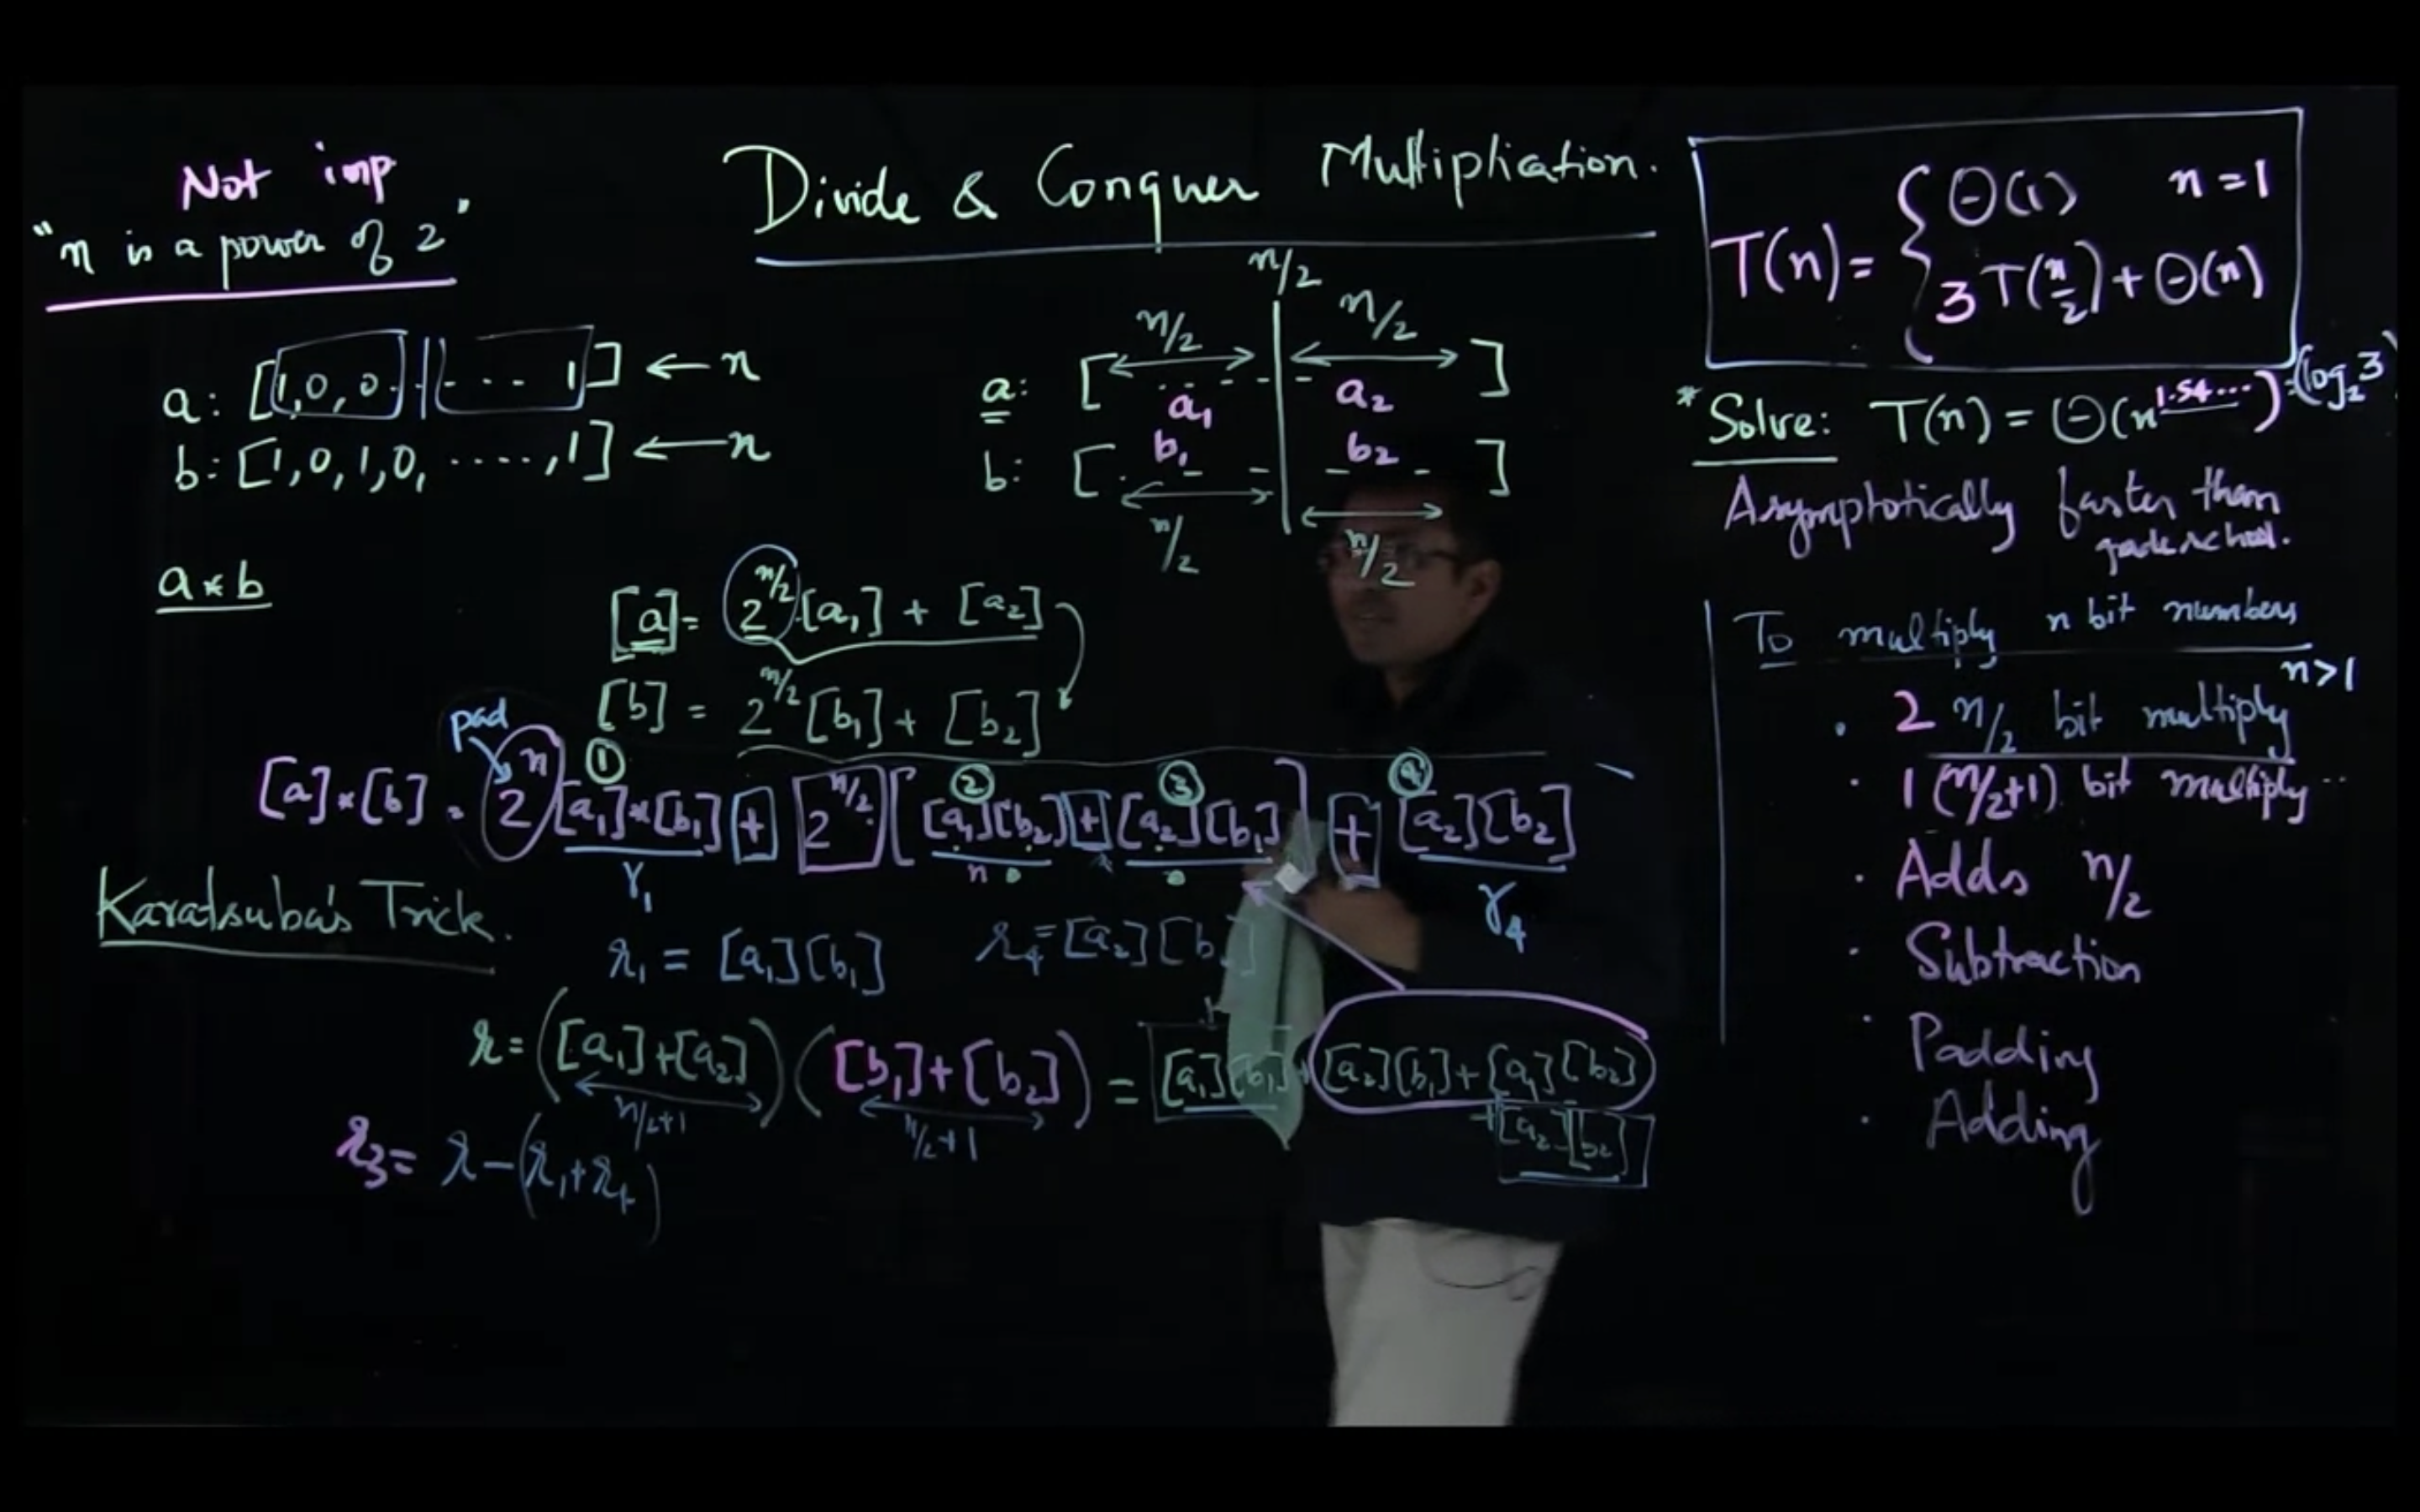 Not imp
"n is a power of 2"
Divide & Conquer Multiplication.
a: [1,0,0 - | - . . . 1] ← n
b: [1,0,1,0, ....., 1] ← n
a * b
n/2
n/2 n/2
a: [ a₁ a₂ ]
b: [ b₁ b₂ ]
n/2 n/2
[a] = 2^(n/2) [a₁] + [a₂]
[b] = 2^(n/2) [b₁] + [b₂]
pad
① ② ③ ④
[a]*[b] = 2^n [a₁]*[b₁] + 2^(n/2) [[a₁][b₂] + [a₂][b₁]] + [a₂][b₂]
r₁ n r₄
Karatsuba's Trick.
r₁ = [a₁][b₁] r₄ = [a₂][b
r = ([a₁]+[a₂]) ([b₁]+[b₂]) = [a₁][b₁] + [a₂][b₁]+[a₁][b₂]
n/2+1 n/2+1
+[a₂][b₂]
r₃ = r - (r₁+r₄)
T(n) = { Θ(1) n=1
3T(n/2) + Θ(n)
*Solve: T(n) = Θ(n^1.54...) = (log₂3)
Asymptotically faster than
gradeschool.
To multiply n bit numbers
n>1
· 2 n/2 bit multiply
· 1 (n/2+1) bit multiply ..
· Adds n/2
· Subtraction
· Padding
· Adding